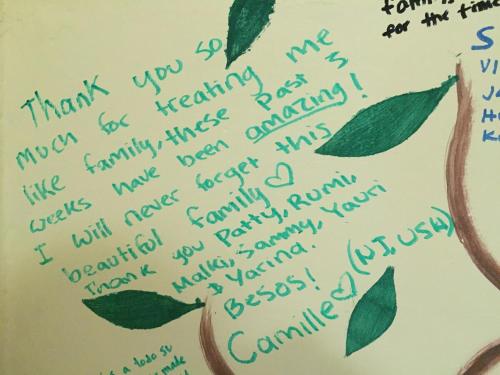 Thank you so
much for treating me
like family, these past 3
weeks have been amazing!
I will never forget this
beautiful family ♡
Thank you Patty, Rumi,
Malki, Sammy, Yauri
& Yarina.
Besos!
Camille ♡ (NJ, USA)
for the time
S
VI